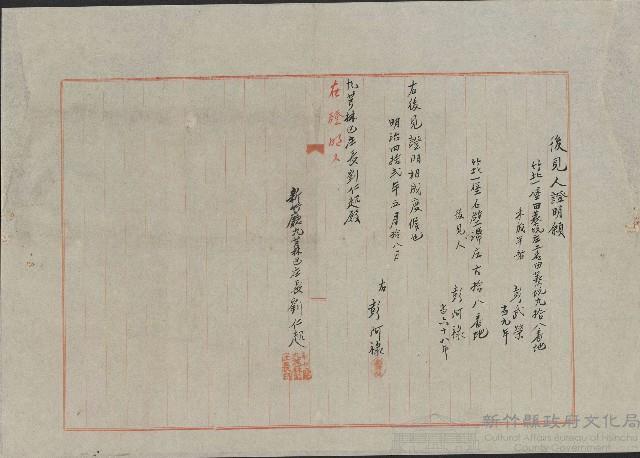 後見人證明願
竹北一堡田藔坑庄土名田藔坑九拾八番地
未成年者 彭武榮
當九年
竹北一堡石壁潭庄古拾八番地
後見人 彭阿祿
當六十八年
右後見證明相成度候也
明治四拾弍年五月拾八日
右 彭阿祿
九芎林區庄長劉仁超殿
右證明ス
新竹廳九芎林區庄長劉仁超
新竹縣政府文化局
Cultural Affairs Bureau of Hsinchu County Government